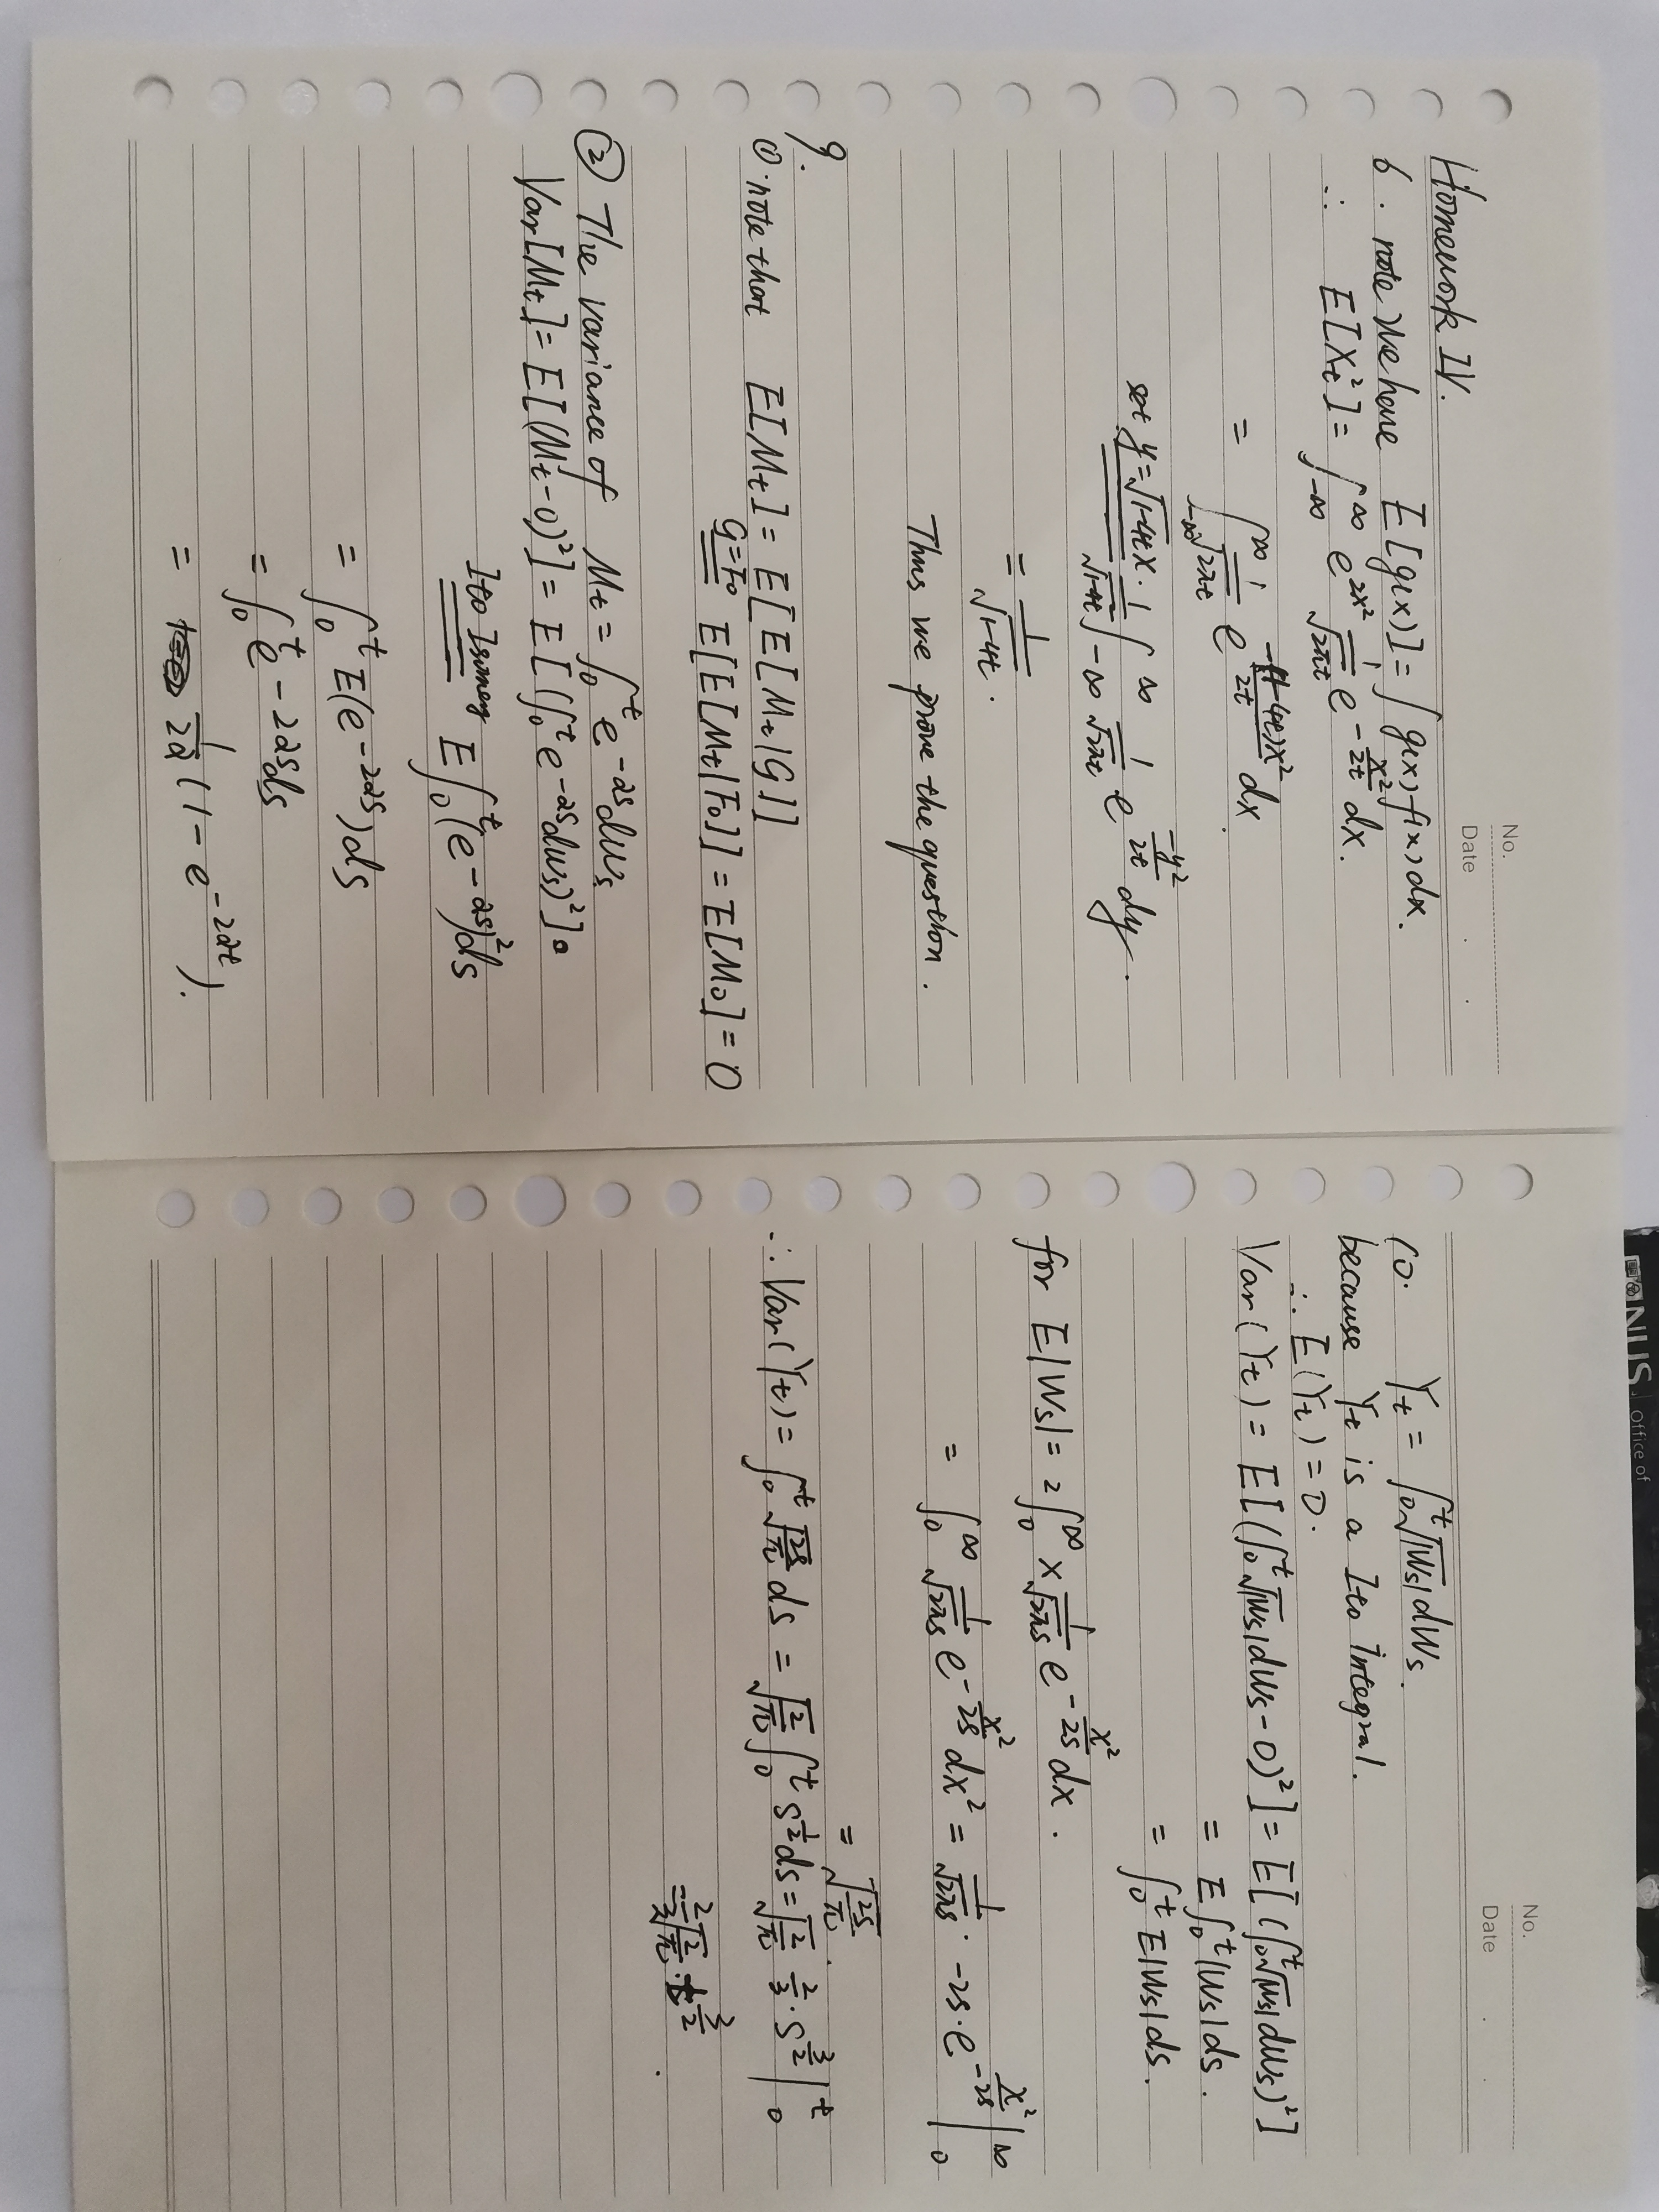 NUS Office of
No.
Date . .
Homework IV.
6. note we have E[g(x)] = ∫ g(x) f(x) dx.
∴ E[X_t^2] = ∫_{-∞}^{∞} e^{2x^2} \frac{1}{\sqrt{2πt}} e^{-\frac{x^2}{2t}} dx.
= ∫_{-∞}^{∞} \frac{1}{\sqrt{2πt}} e^{\frac{-(1-4t)x^2}{2t}} dx.
set y=\sqrt{1-4t}x. \frac{1}{\sqrt{1-4t}} ∫_{-∞}^{∞} \frac{1}{\sqrt{2πt}} e^{\frac{-y^2}{2t}} dy.
= \frac{1}{\sqrt{1-4t}}.
Thus we prove the question.
9.
① note that E[M_t] = E[E[M_t|G]]
G=F_0 E[E[M_t|F_0]] = E[M_0] = 0
② The variance of M_t = ∫_0^t e^{-αs} dW_s
Var[M_t] = E[(M_t-0)^2] = E[(∫_0^t e^{-αs} dW_s)^2].
Ito Isomey E∫_0^t (e^{-αs})^2 ds
= ∫_0^t E(e^{-2αs}) ds
= ∫_0^t e^{-2αs} ds
= \frac{1}{2α} (1 - e^{-2αt}).
No.
Date . .
10. Y_t = ∫_0^t \sqrt{|W_s|} dW_s.
because Y_t is a Ito Integral.
∴ E(Y_t) = 0.
Var(Y_t) = E[(∫_0^t \sqrt{|W_s|} dW_s - 0)^2] = E[(∫_0^t \sqrt{|W_s|} dW_s)^2]
= E∫_0^t |W_s| ds.
= ∫_0^t E|W_s| ds.
for E|W_s| = 2∫_0^∞ x \frac{1}{\sqrt{2πs}} e^{-\frac{x^2}{2s}} dx.
= ∫_0^∞ \frac{1}{\sqrt{2πs}} e^{-\frac{x^2}{2s}} dx^2 = \frac{1}{\sqrt{2πs}} · -2s · e^{-\frac{x^2}{2s}} |_0^∞
= \sqrt{\frac{2s}{π}}.
∴ Var(Y_t) = ∫_0^t \sqrt{\frac{2s}{π}} ds = \sqrt{\frac{2}{π}} ∫_0^t s^{\frac{1}{2}} ds = \sqrt{\frac{2}{π}} \frac{2}{3} · s^{\frac{3}{2}} |_0^t
= \frac{2}{3} \sqrt{\frac{2}{π}} · t^{\frac{3}{2}}.